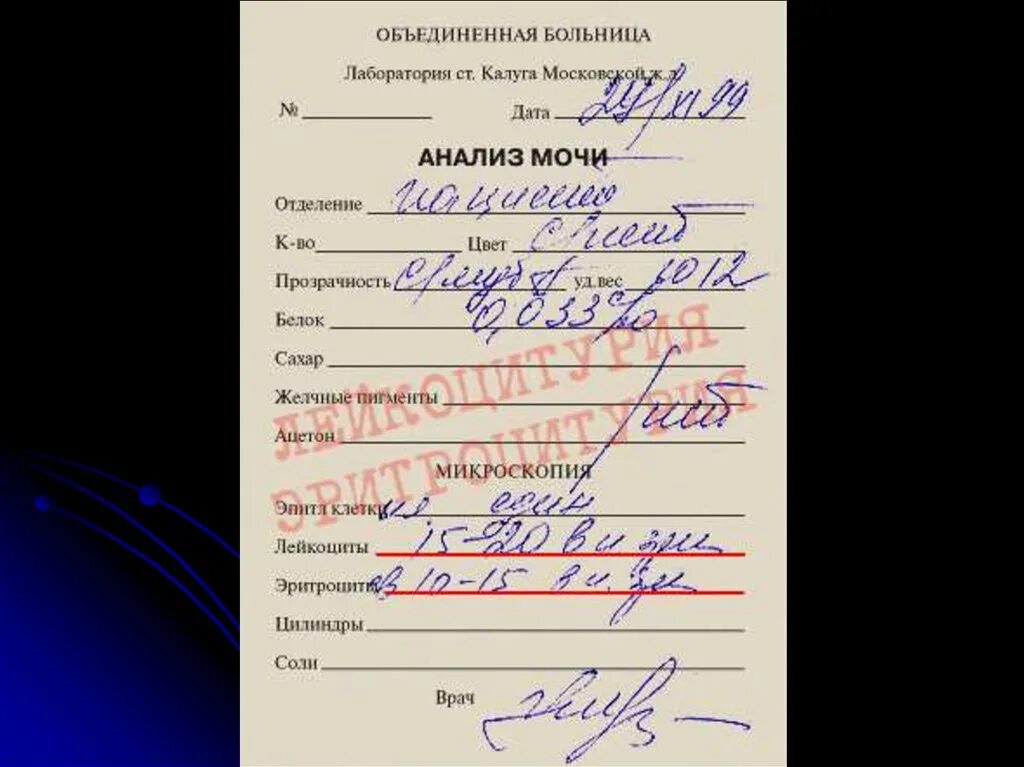 ОБЪЕДИНЕННАЯ БОЛЬНИЦА
Лаборатория ст. Калуга Московской ж.д.
№ Дата 29/XI 99
АНАЛИЗ МОЧИ
Отделение
К-во Цвет
Прозрачность уд.вес 1012
Белок 0,033%
ЛЕЙКОЦИТУРИЯ
Сахар
Желчные пигменты
ЭРИТРОЦИТУРИЯ
Ацетон
МИКРОСКОПИЯ
Эпитл клетки един
Лейкоциты 15-20 в п зр
Эритроциты 10-15 в п. зр
Цилиндры
Соли
Врач